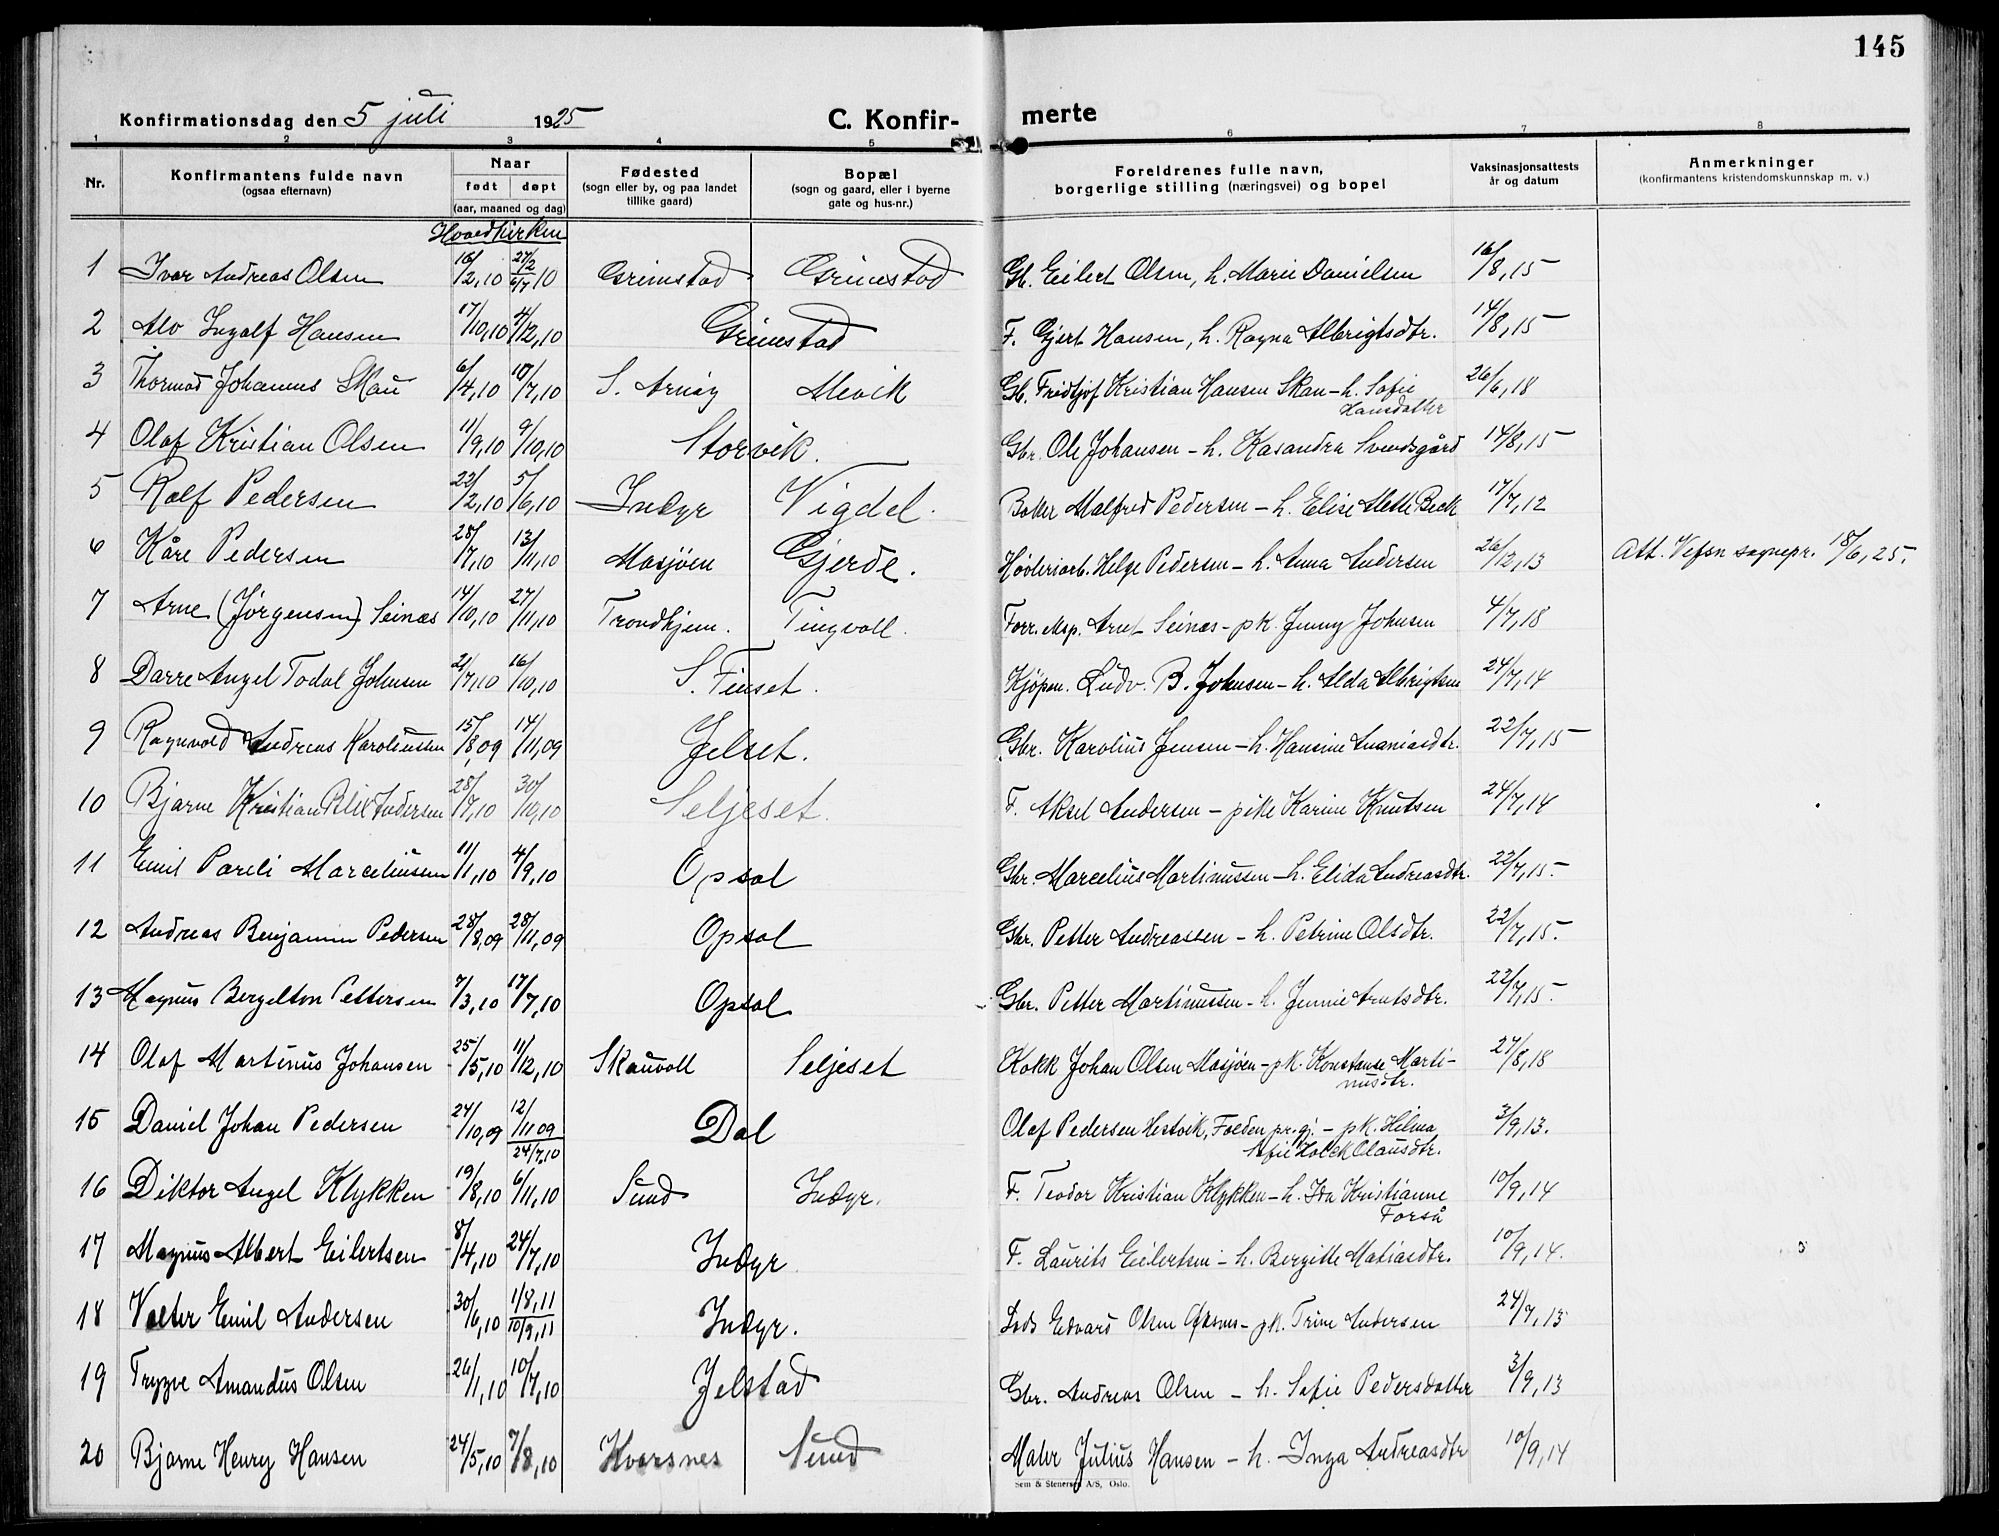 145
Konfirmationsdag den 5 juli 1925 C. Konfir- merte
1 2 3 4 5 6 7 8
Nr. Konfirmantens fulde navn (ogsaa efternavn) Naar født døpt (aar, maaned og dag) Fødested (sogn eller by, og paa landet tillike gaard) Bopæl (sogn og gaard, eller i byerne gate og hus-nr.) Foreldrenes fulle navn, borgerlige stilling (næringsvei) og bopel Vaksinasjonsattests år og datum Anmerkninger (konfirmantens kristendomskunnskap m. v.)
Hovedkirken
1 Ivar Andreas Olsen 16/2,10 27/2 6/7 10 Grimstad Grimstad Gb. Eilert Olsen, h. Marie Danielsen 16/8,15
2 Alv Ingolf Hansen 17/10,10 4/12,10 Grimstad F. Gjert Hansen, h. Ragna Albrigtsdtr. 14/8,15
3 Thormod Johannes Skau 6/4,10 10/7,10 S. Arnøy Mevik Gb. Fridtjof Kristian Hansen Skau - h. Sofie Hansdatter 26/6,18
4 Olaf Kristian Olsen 11/9,10 9/10,10 Storvik. Gbr. Ole Johansen - h. Kasandra Svendsgård 14/8,15
5 Rolf Pedersen 22/2,10 5/6,10 Indyr Vigdel. Baker Malfred Pedersen - h. Elise Mette Beck 17/7,12
6 Kåre Pedersen 28/7,10 13/11,10 Mosjøen Gjerde. Høvleriarb. Helge Pedersen - h. Anna Andersen 26/12,13 Att. Vefsn sognepr. 18/6,25.
7 Arne (Jørgensen) Seines 14/10,10 27/11,10 Trondhjem. Tingvoll. Forr. eksp. Arnt Seines - pk. Jenny Johnsen 4/7,18
8 Darre Angel Todal Johnsen 21/7,10 16/10,10 S. Finset. Kjøpm. Ludv. B. Johnsen - h. Alda Albrigtsen 24/7,14
9 Ragnvald Andreas Karoliussen 15/8,09 14/11,09 Jelset. Gbr. Karolius Jensen - h. Hansine Ananiasdtr. 22/7,15
10 Bjarne Kristian Blix Andersen 28/7,10 30/10,10 Seljeset. F. Aksel Andersen - pike Karine Knutsen 24/7,14
11 Emil Pareli Marceliussen 11/1,10 4/9,10 Opsal Gbr. Marcelius Martinussen - h. Elida Andreasdtr. 22/7,15.
12 Andreas Benjamin Pedersen 28/8,09 28/11,09 Opsal Gbr. Petter Andreassen - h. Petrine Olsdtr. 22/7,15.
13 Magnus Bergelton Pettersen 7/3,10 17/7,10 Opsal Gbr. Petter Martinussen - h. Jennie Arntsdtr. 22/7,15.
14 Olaf Martinus Johansen 25/5,10 11/12,10 Skauvoll Seljeset Kokk Johan Olsen Mosjøen - pk. Konstanse Martinusdtr. 27/8,18
15 Daniel Johan Pedersen 24/10,09 12/11 09 24/7,10 Dal Olaf Pedersen Hestvik, Folden pr.gj. - pk. Hilma Sofie Holck Olausdtr. 3/9,13.
16 Diktor Angel Klykken 19/8,10 6/11,10 Sund Indyr. F. Teodor Kristian Klykken - h. Ida Kristianne Forså 10/9,14
17 Magnus Albert Eilertsen 8/4,10 24/7,10 Indyr F. Laurits Eilertsen - h. Bergitte Matiasdtr. 10/9,14.
18 Valter Emil Andersen 30/6,10 1/8,11 10/9,11 Indyr. Lods Edvard Olsen Øksnes - pk. Trine Andersen 24/7,13
19 Trygve Amandus Olsen 26/1,10 10/7,10 Jelstad Gbr. Andreas Olsen - h. Sofie Pedersdatter 3/9,13
20 Bjarne Henry Hansen 24/5,10 7/8,10 Kvarsnes Sund Maler Julius Hansen - h. Inga Andreasdtr 10/9,14
Sem & Stenersen A/S, Oslo.